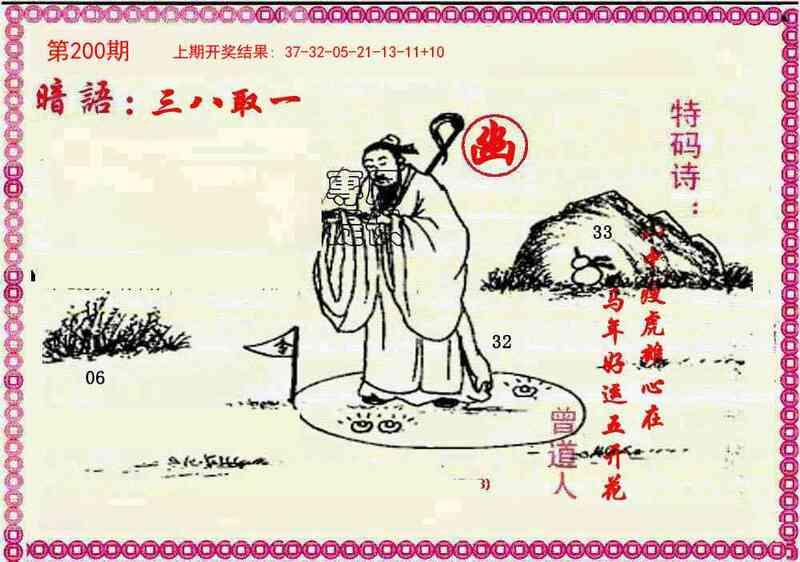 第200期
上期开奖结果: 37-32-05-21-13-11+10
暗語：三八取一
幽
特码诗：
心中段虎雄心在
马年好运五开花
33
32
06
令
曾道人
3)